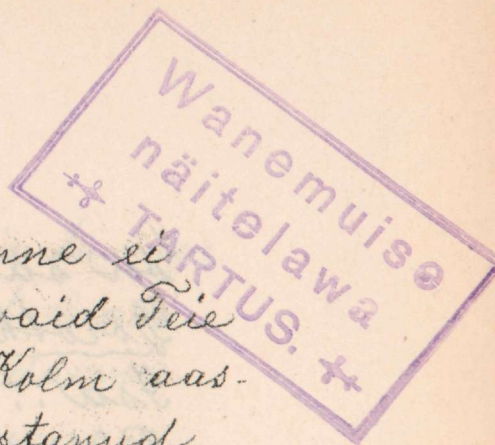 Wanemuise
näitelawa
TARTUS.
ei
vaid Teie
Kolm aas-